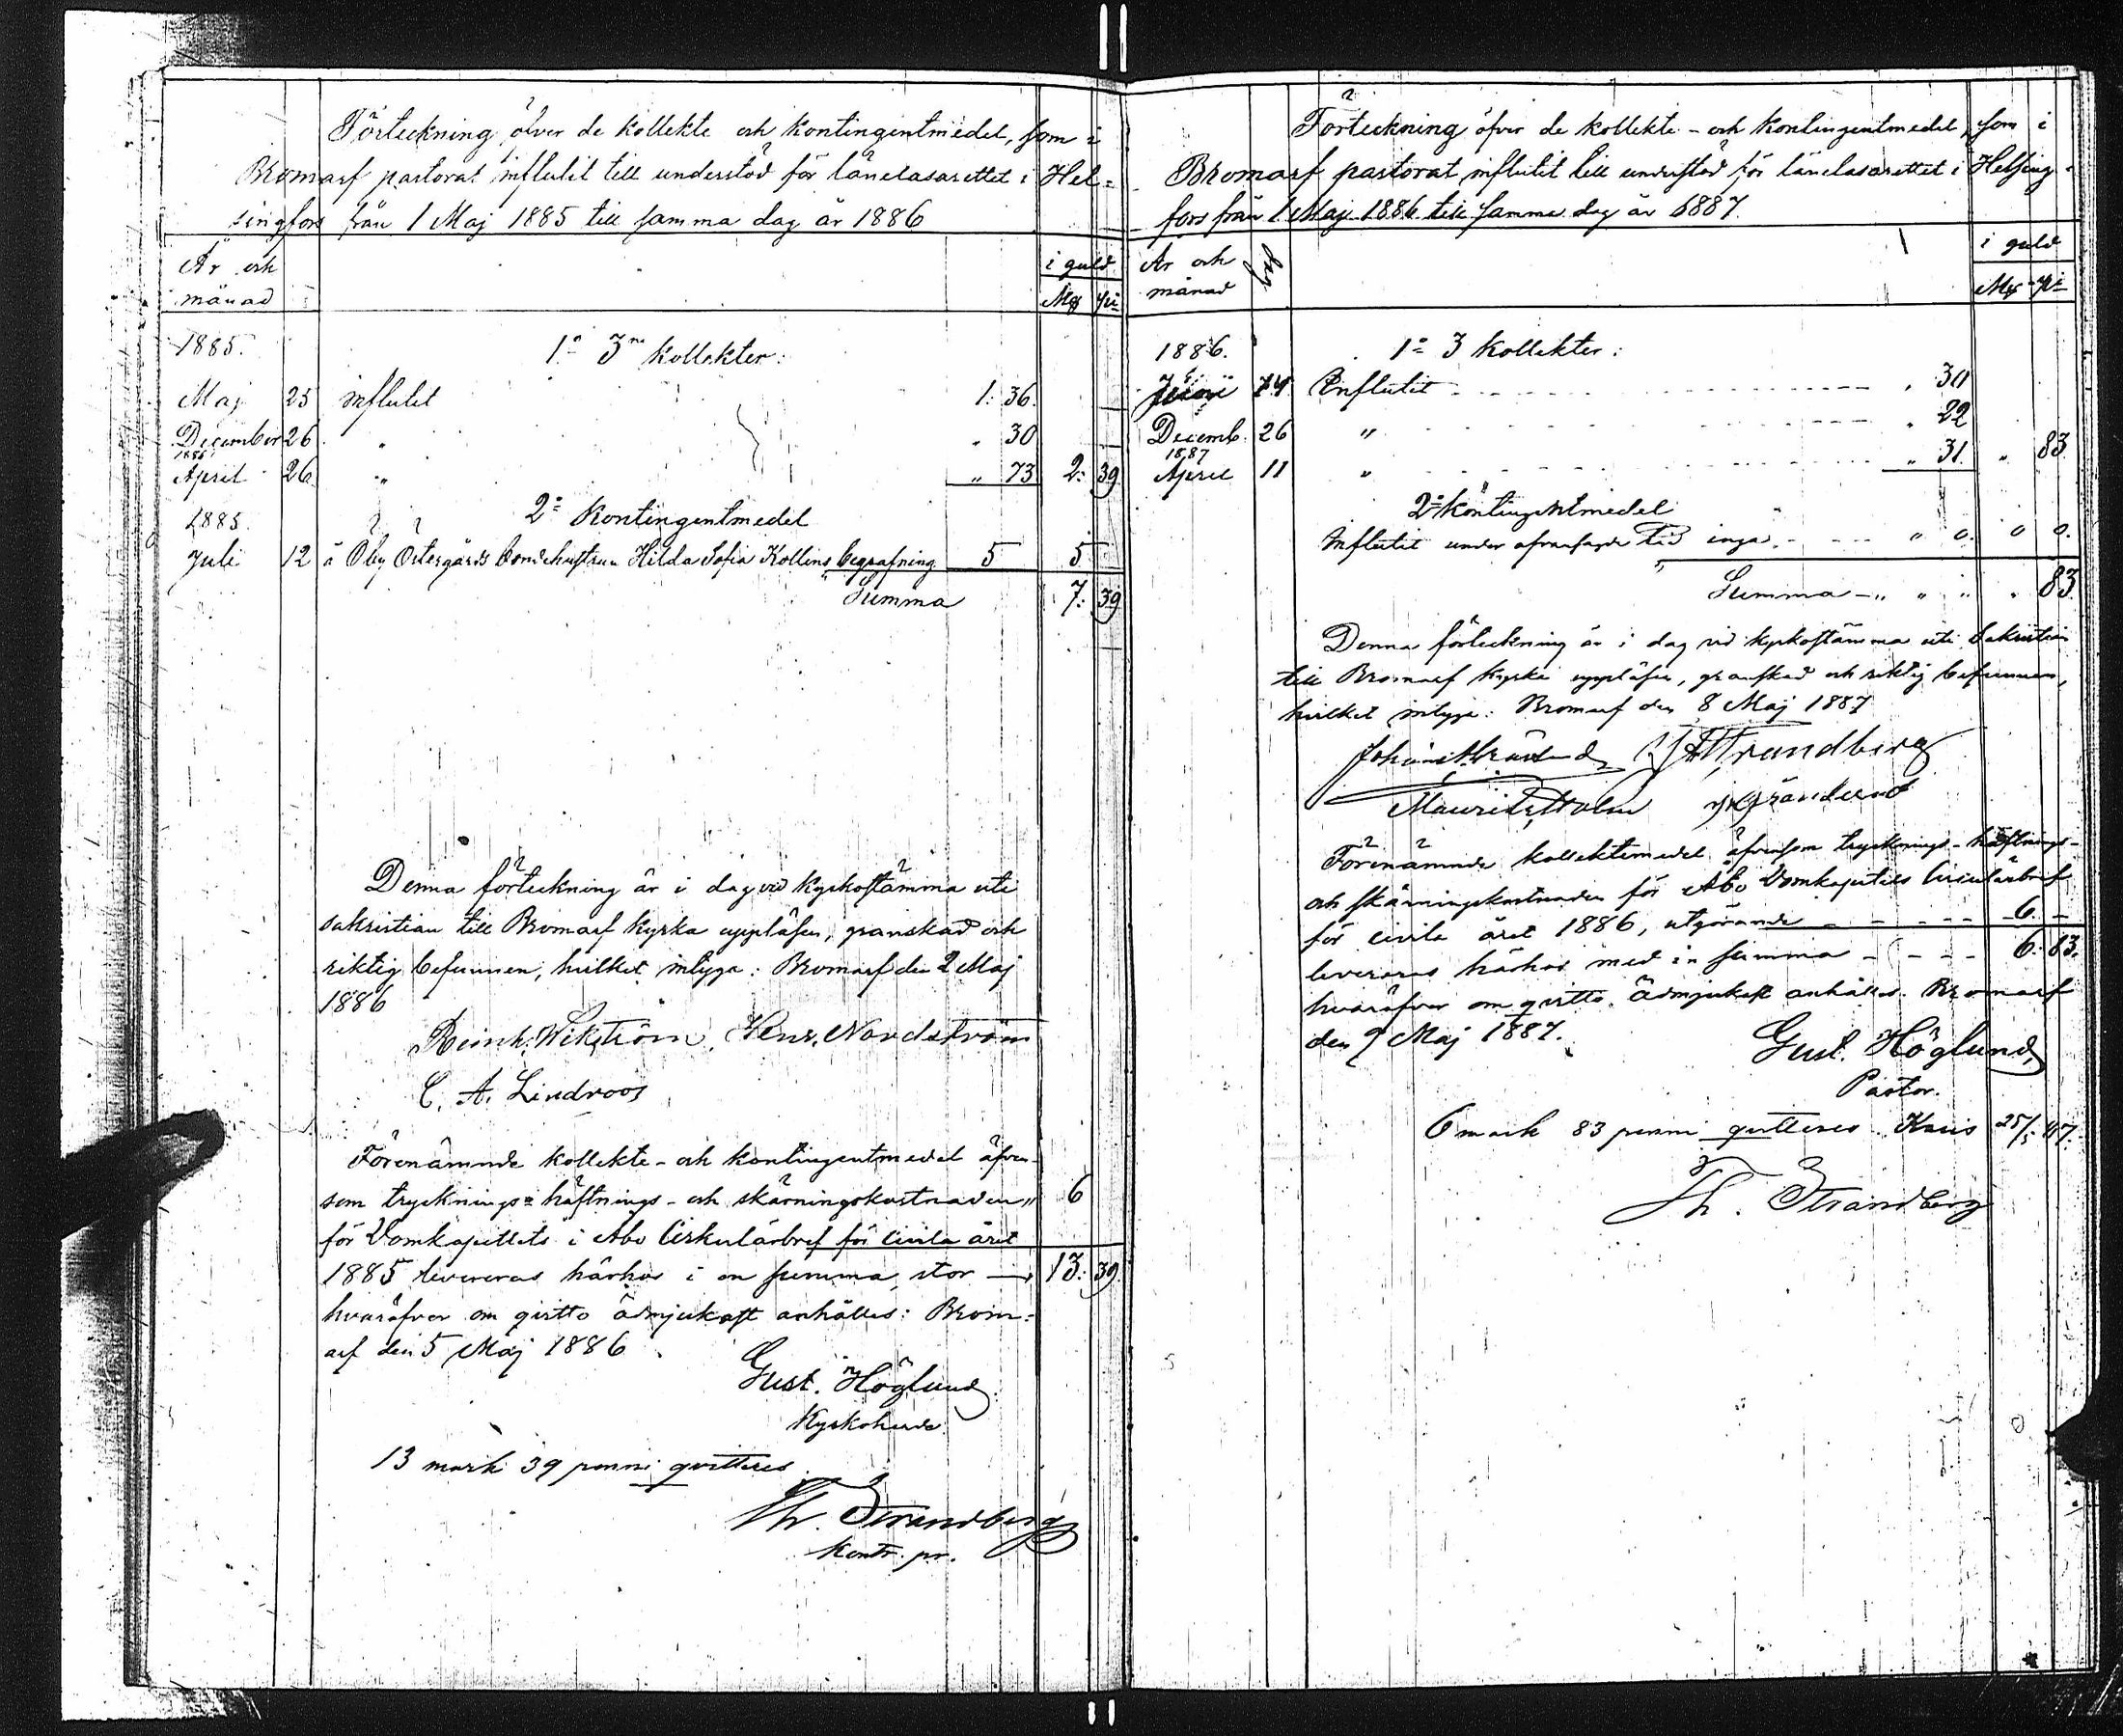 Förteckning öfver de kollekte och kontingentmedel, som i
Bromarf pastorat influtit till understöd för länelasarettet i Hel=
singfors från 1 Maj 1885 till samma dag år 1886
År och i guld
månad Mk pi
1885. 1o 3ne kollekter:
Maj 25 influtit 1: 36.
December 26 " " 30
1886
April 26 " " 73 2: 39
1885. 2o Kontingentmedel
Juli 12 å Öby Östergårds bondehustrun Hilda Sofia Kollins begrafning 5 5
Summa 7: 39
Denna förteckning är i dag vid kyrkostämma uti
sakristian till Bromarf kyrka uppläsen, granskad och
riktig befunnen, hvilket intyga: Bromarf den 2 Maj
1886
Reinh. Wikström, Henr. Nordström
C. A. Lindroos
Förenämnde kollekte- och kontingentmedel äfven-
som trycknings= häftnings- och skärningskostnaden " 6
för Domkapitlets i Åbo Cirkulärbref för civila året
1885 levereras härhos i en summa, stor — 13: 39
hvaröfver om qvitto ödmjukast anhålles: Brom=
arf den 5 Maj 1886
Gust. Höglund
Kyrkoherde
13 mark 39 penni qvitteres
Th. Strandberg
Kontr. pr.
Förteckning öfver de kollekte- och kontingentmedel, som i
Bromarf pastorat influtit till understöd för länelasarettet i Helsing-
fors från 1 Maj 1886 till samma dag år 1887.
År och dag i guld
månad Mk pi
1886. 1o 3 kollekter:
14 Influtit - - - " 30
Decemb. 26 " - - - " 22
1887
April 11 " - - - " 31. " 83.
2o Kontingentmedel
Influtit under ofvansagde tid inga. - - - " 0. 0 0.
Summa - " " " " 83
Denna förteckning är i dag vid kyrkostämma uti Sakristian
till Bromarf kyrka uppläsen, granskad och riktig befunnen,
hvilket intyga: Bromarf den 8 Maj 1887
Strandberg
Maurits Holm Grönlund
Förenämnde kollektemedel äfvensom trycknings- häftnings-
och skärningskostnaden för Åbo Domkapitels Cirkulärbref
för civila året 1886, utgörande - - - - 6. -
levereras härhos med en summa - - - - 6: 83.
hvaröfver om qvitto ödmjukast anhålles. Bromarf
den 9 Maj 1887.
Gust. Höglund,
Pastor.
6 mark 83 penni qvitteres. Karis 25/5 87.
Th. Strandberg